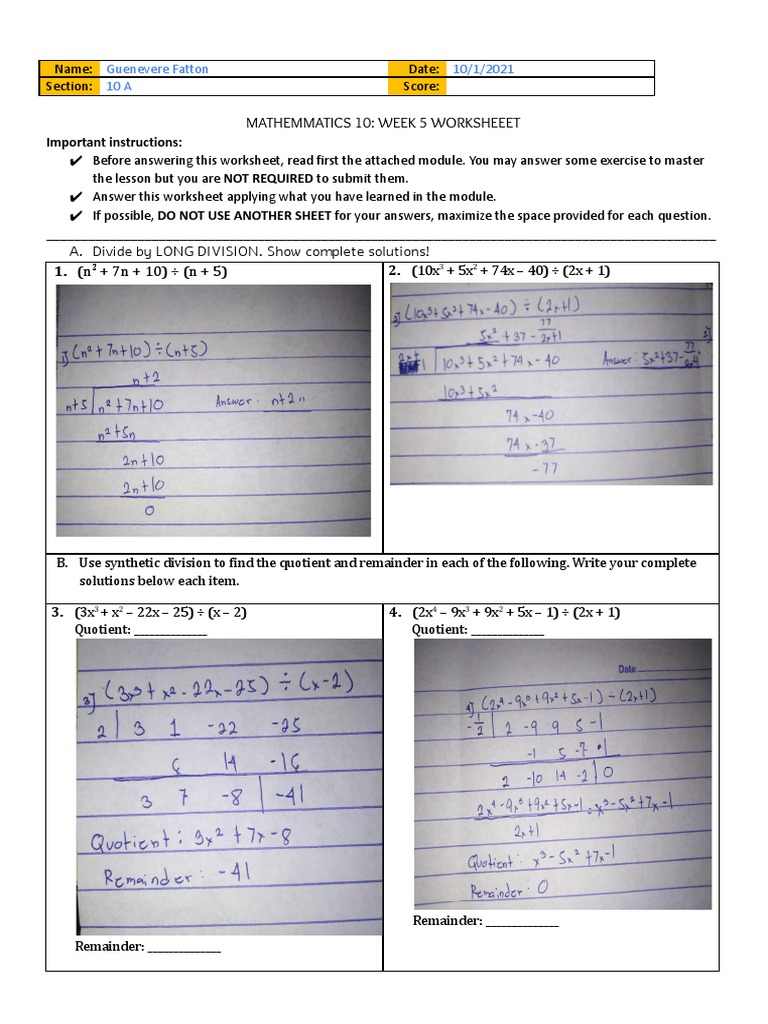 Name: Guenevere Fatton Date: 10/1/2021
Section: 10 A Score:
MATHEMMATICS 10: WEEK 5 WORKSHEEET
Important instructions:
✔ Before answering this worksheet, read first the attached module. You may answer some exercise to master
the lesson but you are NOT REQUIRED to submit them.
✔ Answer this worksheet applying what you have learned in the module.
✔ If possible, DO NOT USE ANOTHER SHEET for your answers, maximize the space provided for each question.
A. Divide by LONG DIVISION. Show complete solutions!
1. (n² + 7n + 10) ÷ (n + 5)
1) (n²+7n+10)÷(n+5)
n+2
n+5 n²+7n+10 Answer: n+2
n²+5n
2n+10
2n+10
0
2. (10x³ + 5x² + 74x – 40) ÷ (2x + 1)
2) (10x³+5x²+74x-40) ÷ (2x+1)
5x²+37-77/2x+1
10x³+5x²+74x-40 Answer: 5x²+37-
10x³+5x²
74x-40
74x-37
-77
B. Use synthetic division to find the quotient and remainder in each of the following. Write your complete
solutions below each item.
3. (3x³ + x² – 22x – 25) ÷ (x – 2)
Quotient: ______________
3) (3x³+x²-22x-25) ÷ (x-2)
2 | 3 1 -22 -25
6 14 -16
3 7 -8 | -41
Quotient: 3x²+7x-8
Remainder: -41
Remainder: ______________
4. (2x⁴ – 9x³ + 9x² + 5x – 1) ÷ (2x + 1)
Quotient: ______________
Date:
4) (2x⁴-9x³+9x²+5x-1)÷(2x+1)
-1/2 | 2 -9 9 5 -1
-1 5 -7 1
2 -10 14 -2 | 0
2x⁴-9x³+9x²+5x-1 = x³-5x²+7x-1
2x+1
Quotient: x³-5x²+7x-1
Remainder: 0
Remainder: ______________